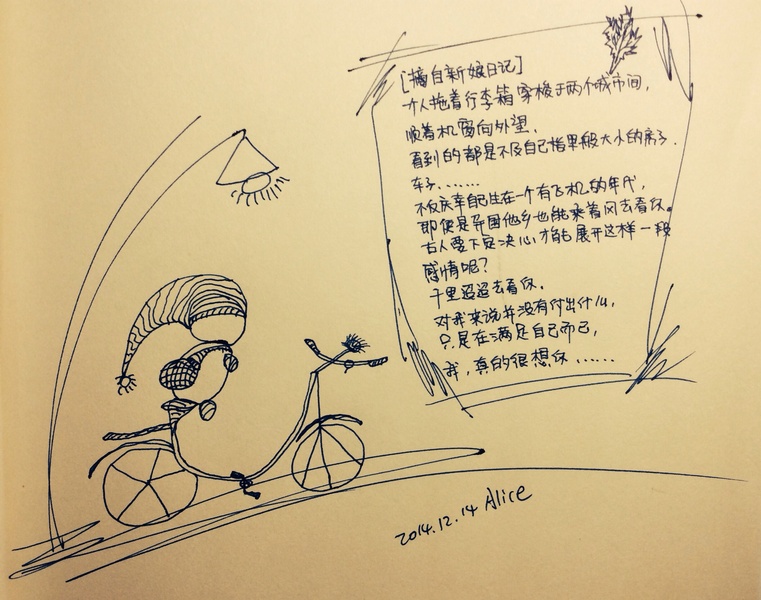 [摘自新娘日记]
个人拖着行李箱穿梭于两个城市间，
顺着机窗向外望、
看到的都是不及自己指甲般大小的房子．
车子．．．．．．
不仅庆幸自己生在一个有飞机的年代，
即便是异国他乡也能乘着风去看你。
古人要下定决心才能展开这样一段
感情呢？
千里迢迢去看你．
对我来说并没有付出什么，
只是在满足自己而已，
我，真的很想你．．．．．．
2014.12.14 Alice